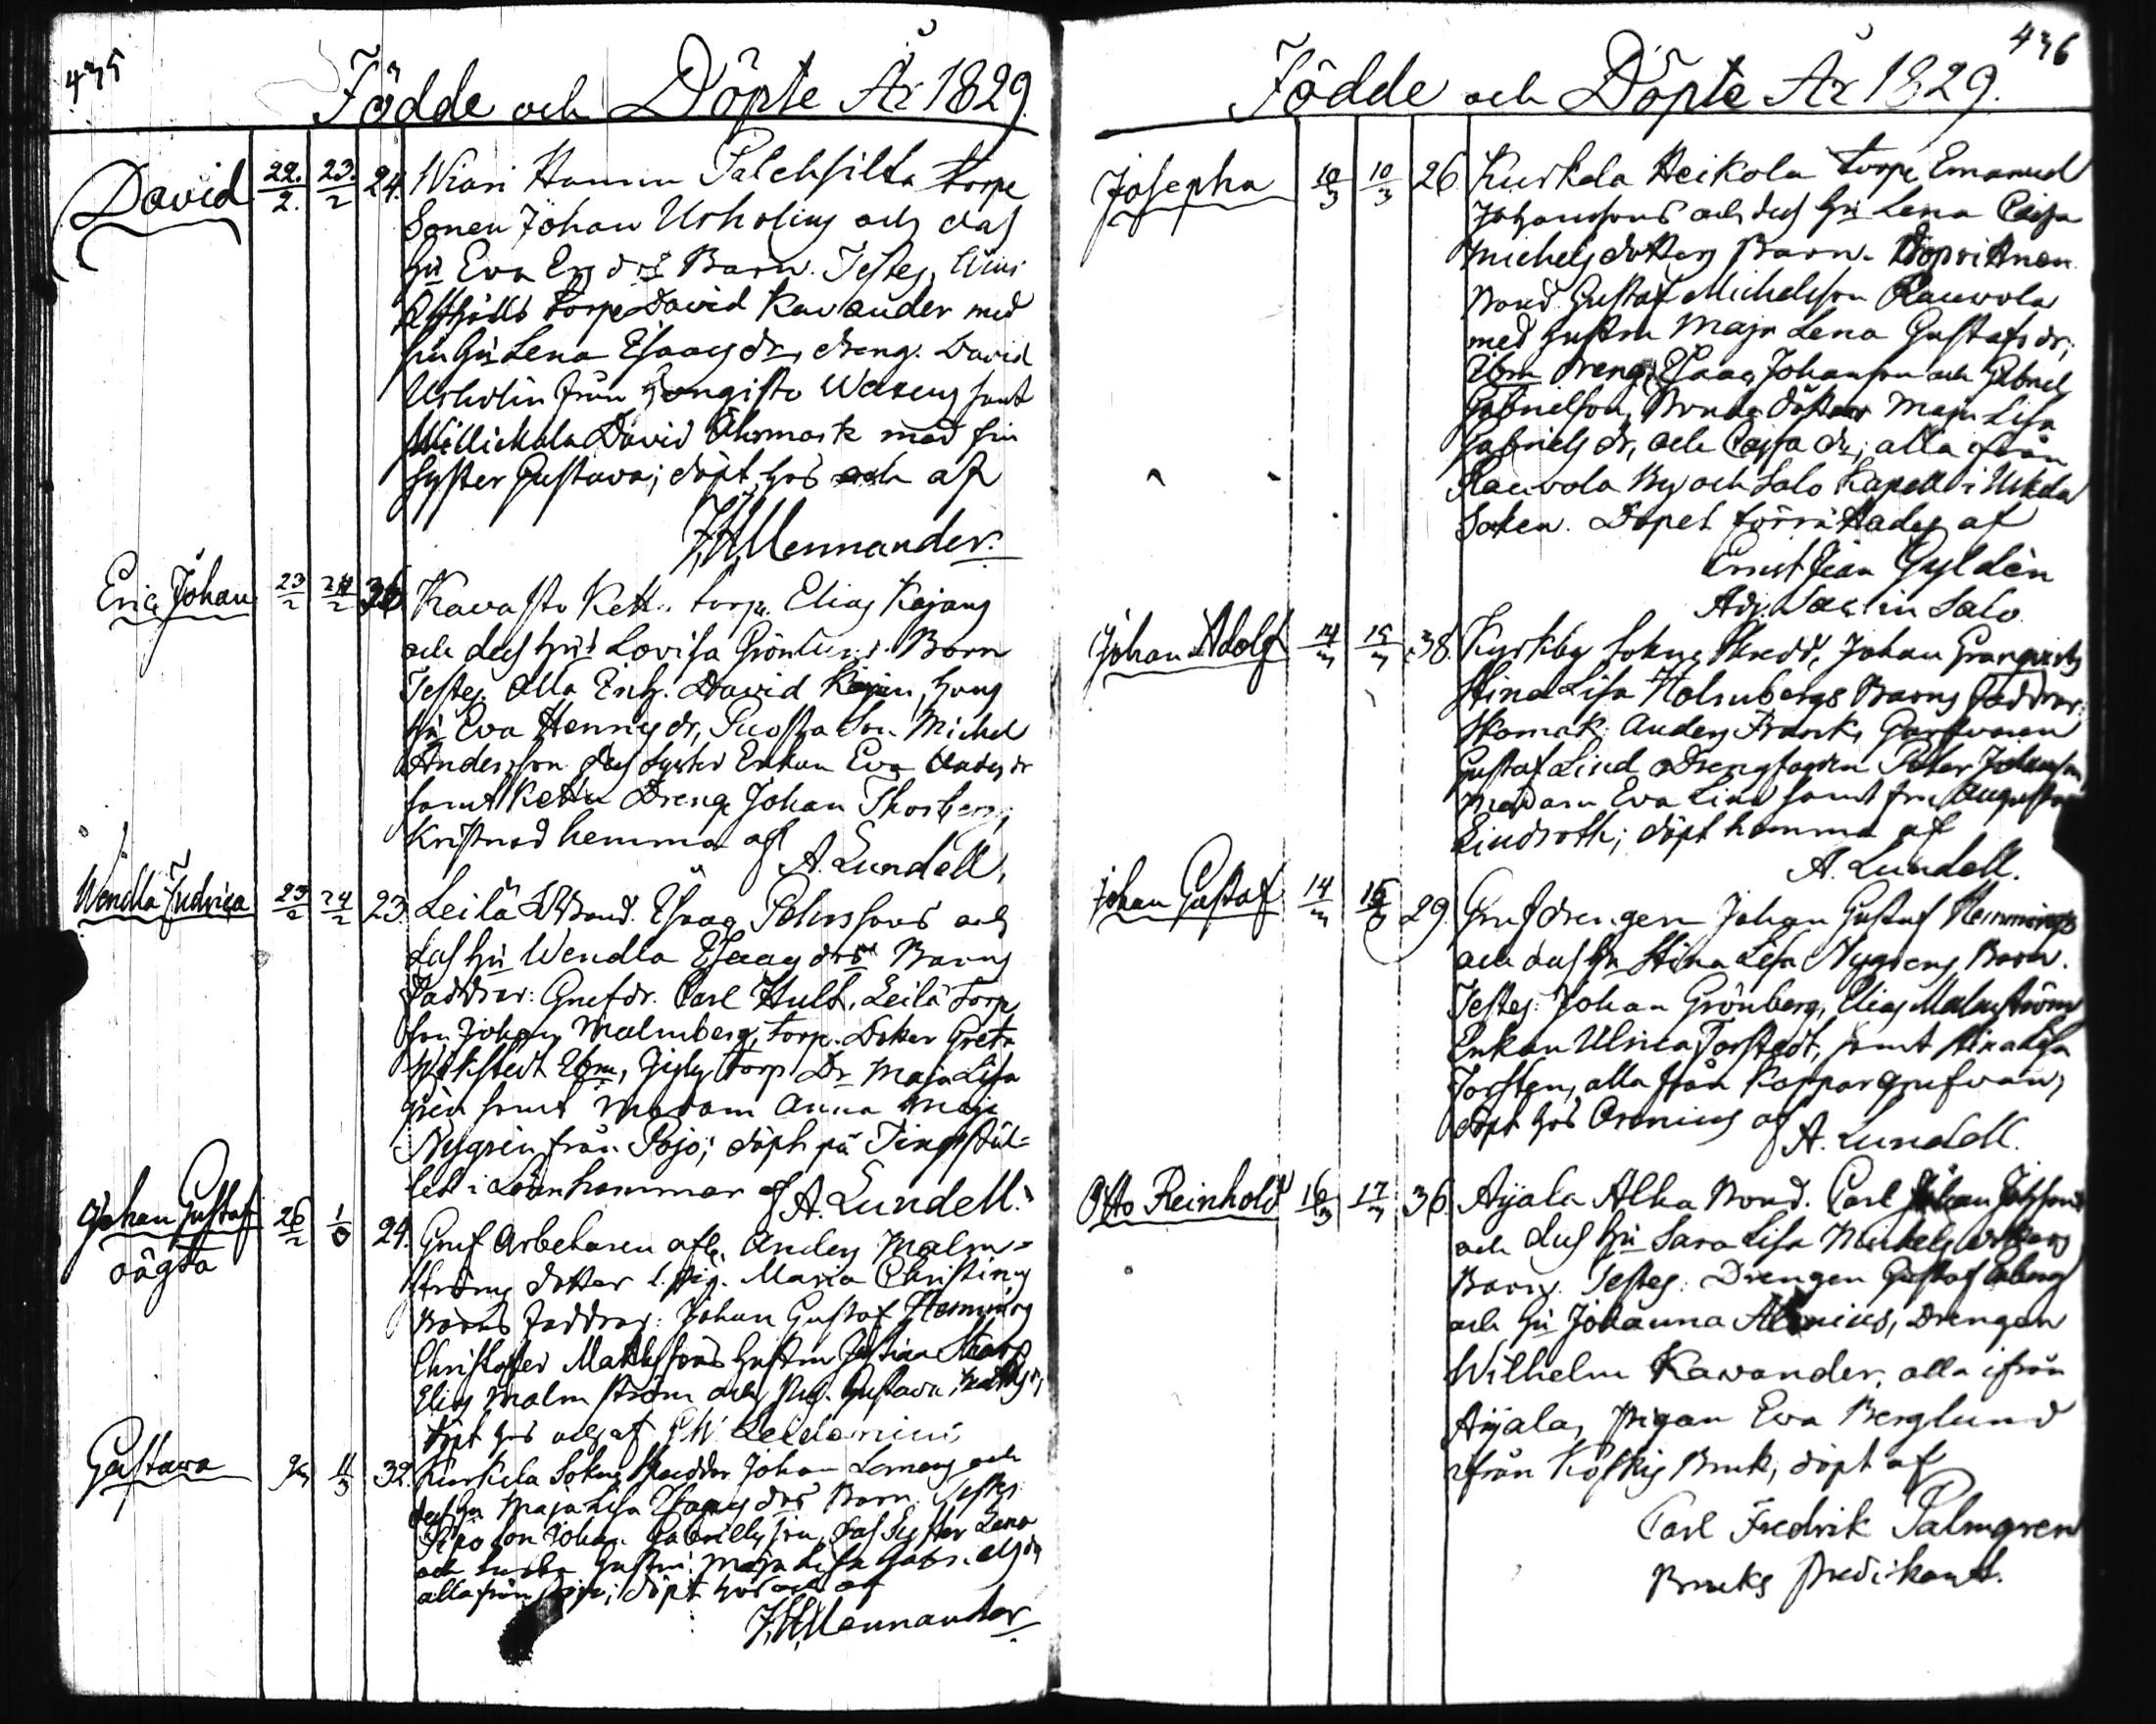 435
Födde och Döpte År 1829.
David 22./2. 23./2 24. Wiari Hannu torpe
Sonen Johan Urholins och das
Hu Eva drs Barn. Testes,
torpe David Kavander med
sin Hu Lena Esaacs dr, dreng. David
Urholin från samt
David Åhrmark med sin
Syster Gustava; döpt hos och af
J.H. Mennander.
Eric Johan 23/2 24/2 36 Kavasto Kett. torp. Elias Kajans
och des Hus Lovisa Grönlunds Barn
Testes. Alla Enh. David Kajan, hans
Hu Eva Hennes dr, Son Michel
Andersson des Syster Enkan Eva Anders dr
samt Drenge Johan Thorberg,
Kristnad hemma af
A. Lundell.
Wendla Fredrica 23/2 24/2 23. Leilä Bond. Esaac och
das Hu Wendla Esaacs drs Barns
Faddrar: Grufdr. Carl Hult, Leilä Torp
son Johan Malmberg, torp. Doter Greta
torp Dr Maja Lisa
samt Madam Anna Maja
Nygrén från Pojo; döpt på Tingstäl-
let i Lövnhammar af A. Lundell.
Johan Gustaf 26/2 1/3 24. Gruf Arbetaren afl. Anders Malm-
oägta ströms dotter l. pig. Maria Christinas
Barns Faddrar: Johan Gustaf Hemming
Christoffer Mattssons Hustru Justina
Elias Malmström och pig. Gustava
döpt hos och af
Gustava 11/3 32. Kurkela Sokne Skredder Johan Lemans och
des Hu Maja Lisa Esaacs drs Barn. Testes
son Johan Gabrielsson, das Syster Lena
och Hustru Maja Lisa Gabriels dr
alla från döpt hos och af
J.H. Mennander
436
Födde och Döpte År 1829.
Josepha 10/3 10/3 26 Kurkela Heikola torpe Emanuel
Johanssons och des Hu Lena Caisa
Michels dotters Barn. Dopvittnen
Bond. Gustaf Michelsson Rauvola
med hustru Maja Lena Gustafs dr;
Ibm dreng. Esaac Johansson och Gabriel
Gabrielsson, Bonde döttrar Maja Lisa
Gabriels dr, och Caisa dr; alla ifrån
Rauvola By och Salo Kapell i Uskela
Soken. Dopet förrättades af
Ernst Jean Gyldén
Adj. Sac. in Salo
Johan Adolf 14/3 15/3 38. Kyrkby Sokne Skredd. Johan Granqvists
Stina Lisa Holmbergs Barns Faddrar:
Skomak. Anders Franck, Garfvaren
Gustaf Lind Peter Johansson,
Madam Eva Lind samt fru Augusta
Lindroth; döpt hemma af
A. Lundell.
Johan Gustaf 14/3 15/3 29. Grufdrengen Johan Gustaf Hemmings
och des Hu Stina Lisa Nygrens Barn.
Testes: Johan Grönberg, Elias Malmström
Enkan Ulrica Torstedt, samt Stina Lisa
Torsten, alla från Koppargrufvan,
döpt hos Orenius af A. Lundell.
Otto Reinhold 16/3 17/3 36. Aijala Alha Bond. Carl Johan Johssons
och des Hu Sara Lisa Michels dotters
Barn. Testes: Drengen Gustaf Enberg
och Hu Johanna Alenius, Drengen
Wilhelm Kavander, alla ifrån
Aijala, Pigan Eva Berglund
ifrån Koskis Bruk, döpt af
Carl Fredrik Palmgren
Bruks Predikant.